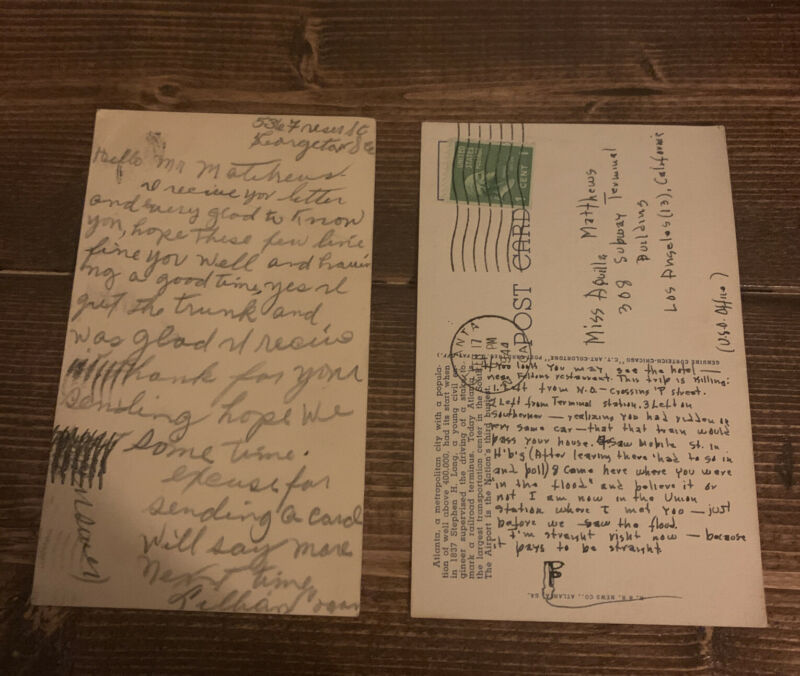 Georgetow
Hello Mr Matthews
I receive yor letter
and very glad to Know
you, hope these few line
fine you well and havin
ng a good time, yes I
get the trunk and
was glad I receive
thank for your
sending hope we
some time.
excuse for
sending a card
Will say more
Next time
Lillian
answer)
UNITED STATES
1 CENT
POST CARD
Miss Aquilla Matthews
308 Subway Terminal
Building
Los Angeles (13), California
(U.S.O. Office)
17
PM
1944
GENUINE CURTEICH-CHICAGO "C.T. ART-COLORTONE" POST
Atlanta, a metropolitan city with a popula-
tion of well above 400,000, had its start when
in 1837 Stephen H. Long, a young civil en-
gineer supervised the driving of a stake to
mark a railroad terminus. Today Atlanta is
the largest transportation center in the South.
The Airport is the Nation's third busiest.
If you look you may see the hotel
near restaurant. This trip is killing:
1. Left from N.O.— crossing 'P' street.
2 Left from Terminal station, 3 Left on
Southerner — realizing you had ridden on
very same car — that that train would
pass your house. 4 Saw Mobile St. in
H'b'g (After leaving there had to go in
and poll) & came here where you were
"in the flood" and believe it or
not I am now in the Union
Station where I met you — just
before we saw the flood.
I'm straight right now — because
it pays to be straight
NEWS CO., ATLANTA, GA.